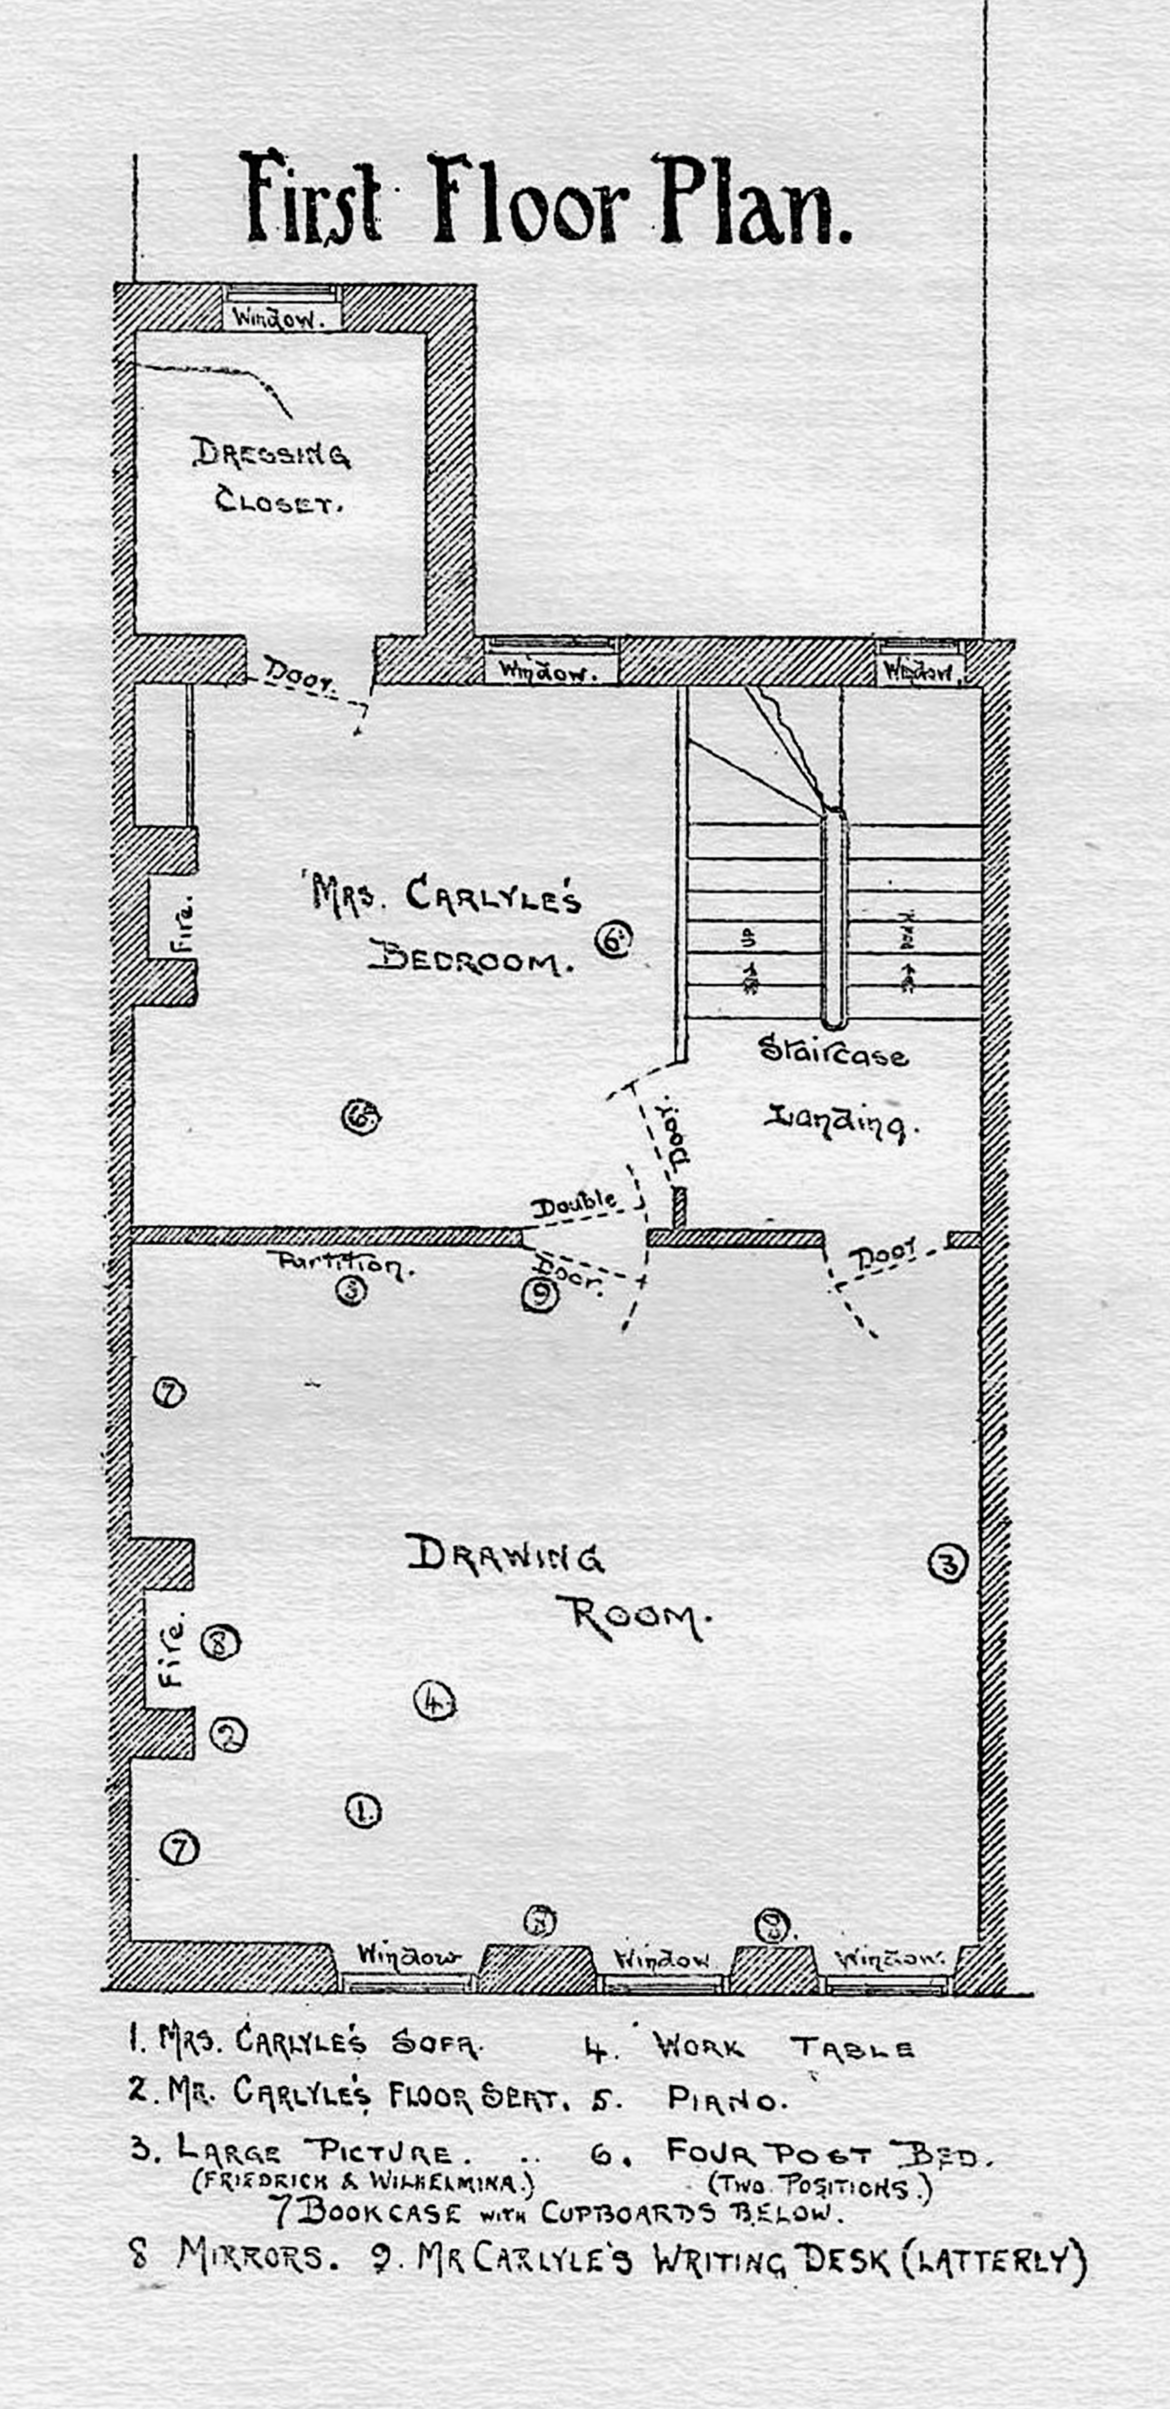 First Floor Plan.
Window.
DRESSING
CLOSET.
Door.
Window.
Window.
Fire.
MRS. CARLYLE'S
BEDROOM.
6
UP
Staircase
Landing.
6
Door.
Double
Door.
Partition.
Door
9
7
DRAWING
ROOM.
3
Fire.
8
4.
2
1.
7
8.
Window
Window
Window.
1. MRS. CARLYLE'S SOFA.
4. WORK TABLE
2. MR. CARLYLE'S FLOOR SEAT.
5. PIANO.
3. LARGE PICTURE. ..
(FRIEDRICH & WILHELMINA.)
6. FOUR POST BED.
(TWO POSITIONS.)
7 BOOKCASE WITH CUPBOARDS BELOW.
8 MIRRORS. 9. MR CARLYLE'S WRITING DESK (LATTERLY)